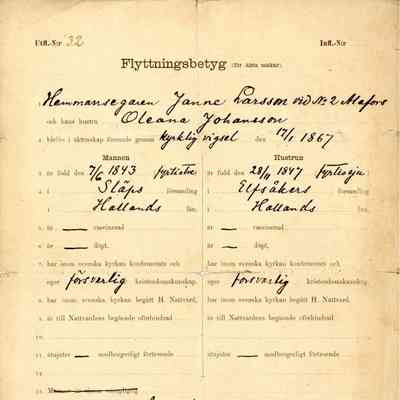 Utfl.-N:r 32 Infl.-N:r
Flyttningsbetyg (för äkta makar)
1. Hemmansegaren Janne Larsson vid No 2 Alafors
2. och hans hustru Oleana Johansson
3. blefvo i äktenskap förenade genom kyrklig vigsel den 17/1 1867
Mannen Hustrun
är född den 7/6 1843 är född den 28/11 1847
4. i Släps församling i Elfsåkers församling
i Hallands län. i Hallands län.
5. är — vaccinerad är — vaccinerad
6. är — döpt. är — döpt.
7. har inom svenska kyrkan konfirmerats och har inom svenska kyrkan konfirmerats och
eger försvarlig kristendomskunskap. eger försvarlig kristendomskunskap.
8. har inom svenska kyrkan begått H. Nattvard, har inom svenska kyrkan begått H. Nattvard,
9. är till Nattvardens begående oförhindrad är till Nattvardens begående oförhindrad
10.
11. åtnjuter — medborgerligt förtroende åtnjuter — medborgerligt förtroende
12.